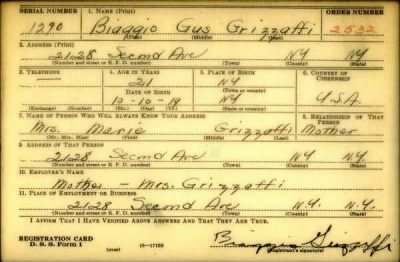 SERIAL NUMBER 1. NAME (Print) ORDER NUMBER
1290 Biaggio Gus Grizzaffi 2532
(First) (Middle) (Last)
2. ADDRESS (Print)
2128 Second Ave NY NY
(Number and street or R. F. D. number) (Town) (County) (State)
3. TELEPHONE 4. AGE IN YEARS 5. PLACE OF BIRTH 6. COUNTRY OF CITIZENSHIP
21 NY
DATE OF BIRTH (Town or county)
10-10-19 NY U.S.A.
(Exchange) (Number) (Mo.) (Day) (Yr.) (State or country)
7. NAME OF PERSON WHO WILL ALWAYS KNOW YOUR ADDRESS 8. RELATIONSHIP OF THAT PERSON
Mrs. Marie Grizzaffi Mother
(Mr., Mrs., Miss) (First) (Middle) (Last)
9. ADDRESS OF THAT PERSON
2128 Second Ave NY NY
(Number and street or R. F. D. number) (Town) (County) (State)
10. EMPLOYER'S NAME
Mother - Mrs. Grizzaffi
11. PLACE OF EMPLOYMENT OR BUSINESS
2128 Second Ave N.Y. N.Y.
(Number and street or R. F. D. number) (Town) (County) (State)
I AFFIRM THAT I HAVE VERIFIED ABOVE ANSWERS AND THAT THEY ARE TRUE.
REGISTRATION CARD
D. S. S. Form 1 (over) 16-17105 (Registrant's signature)